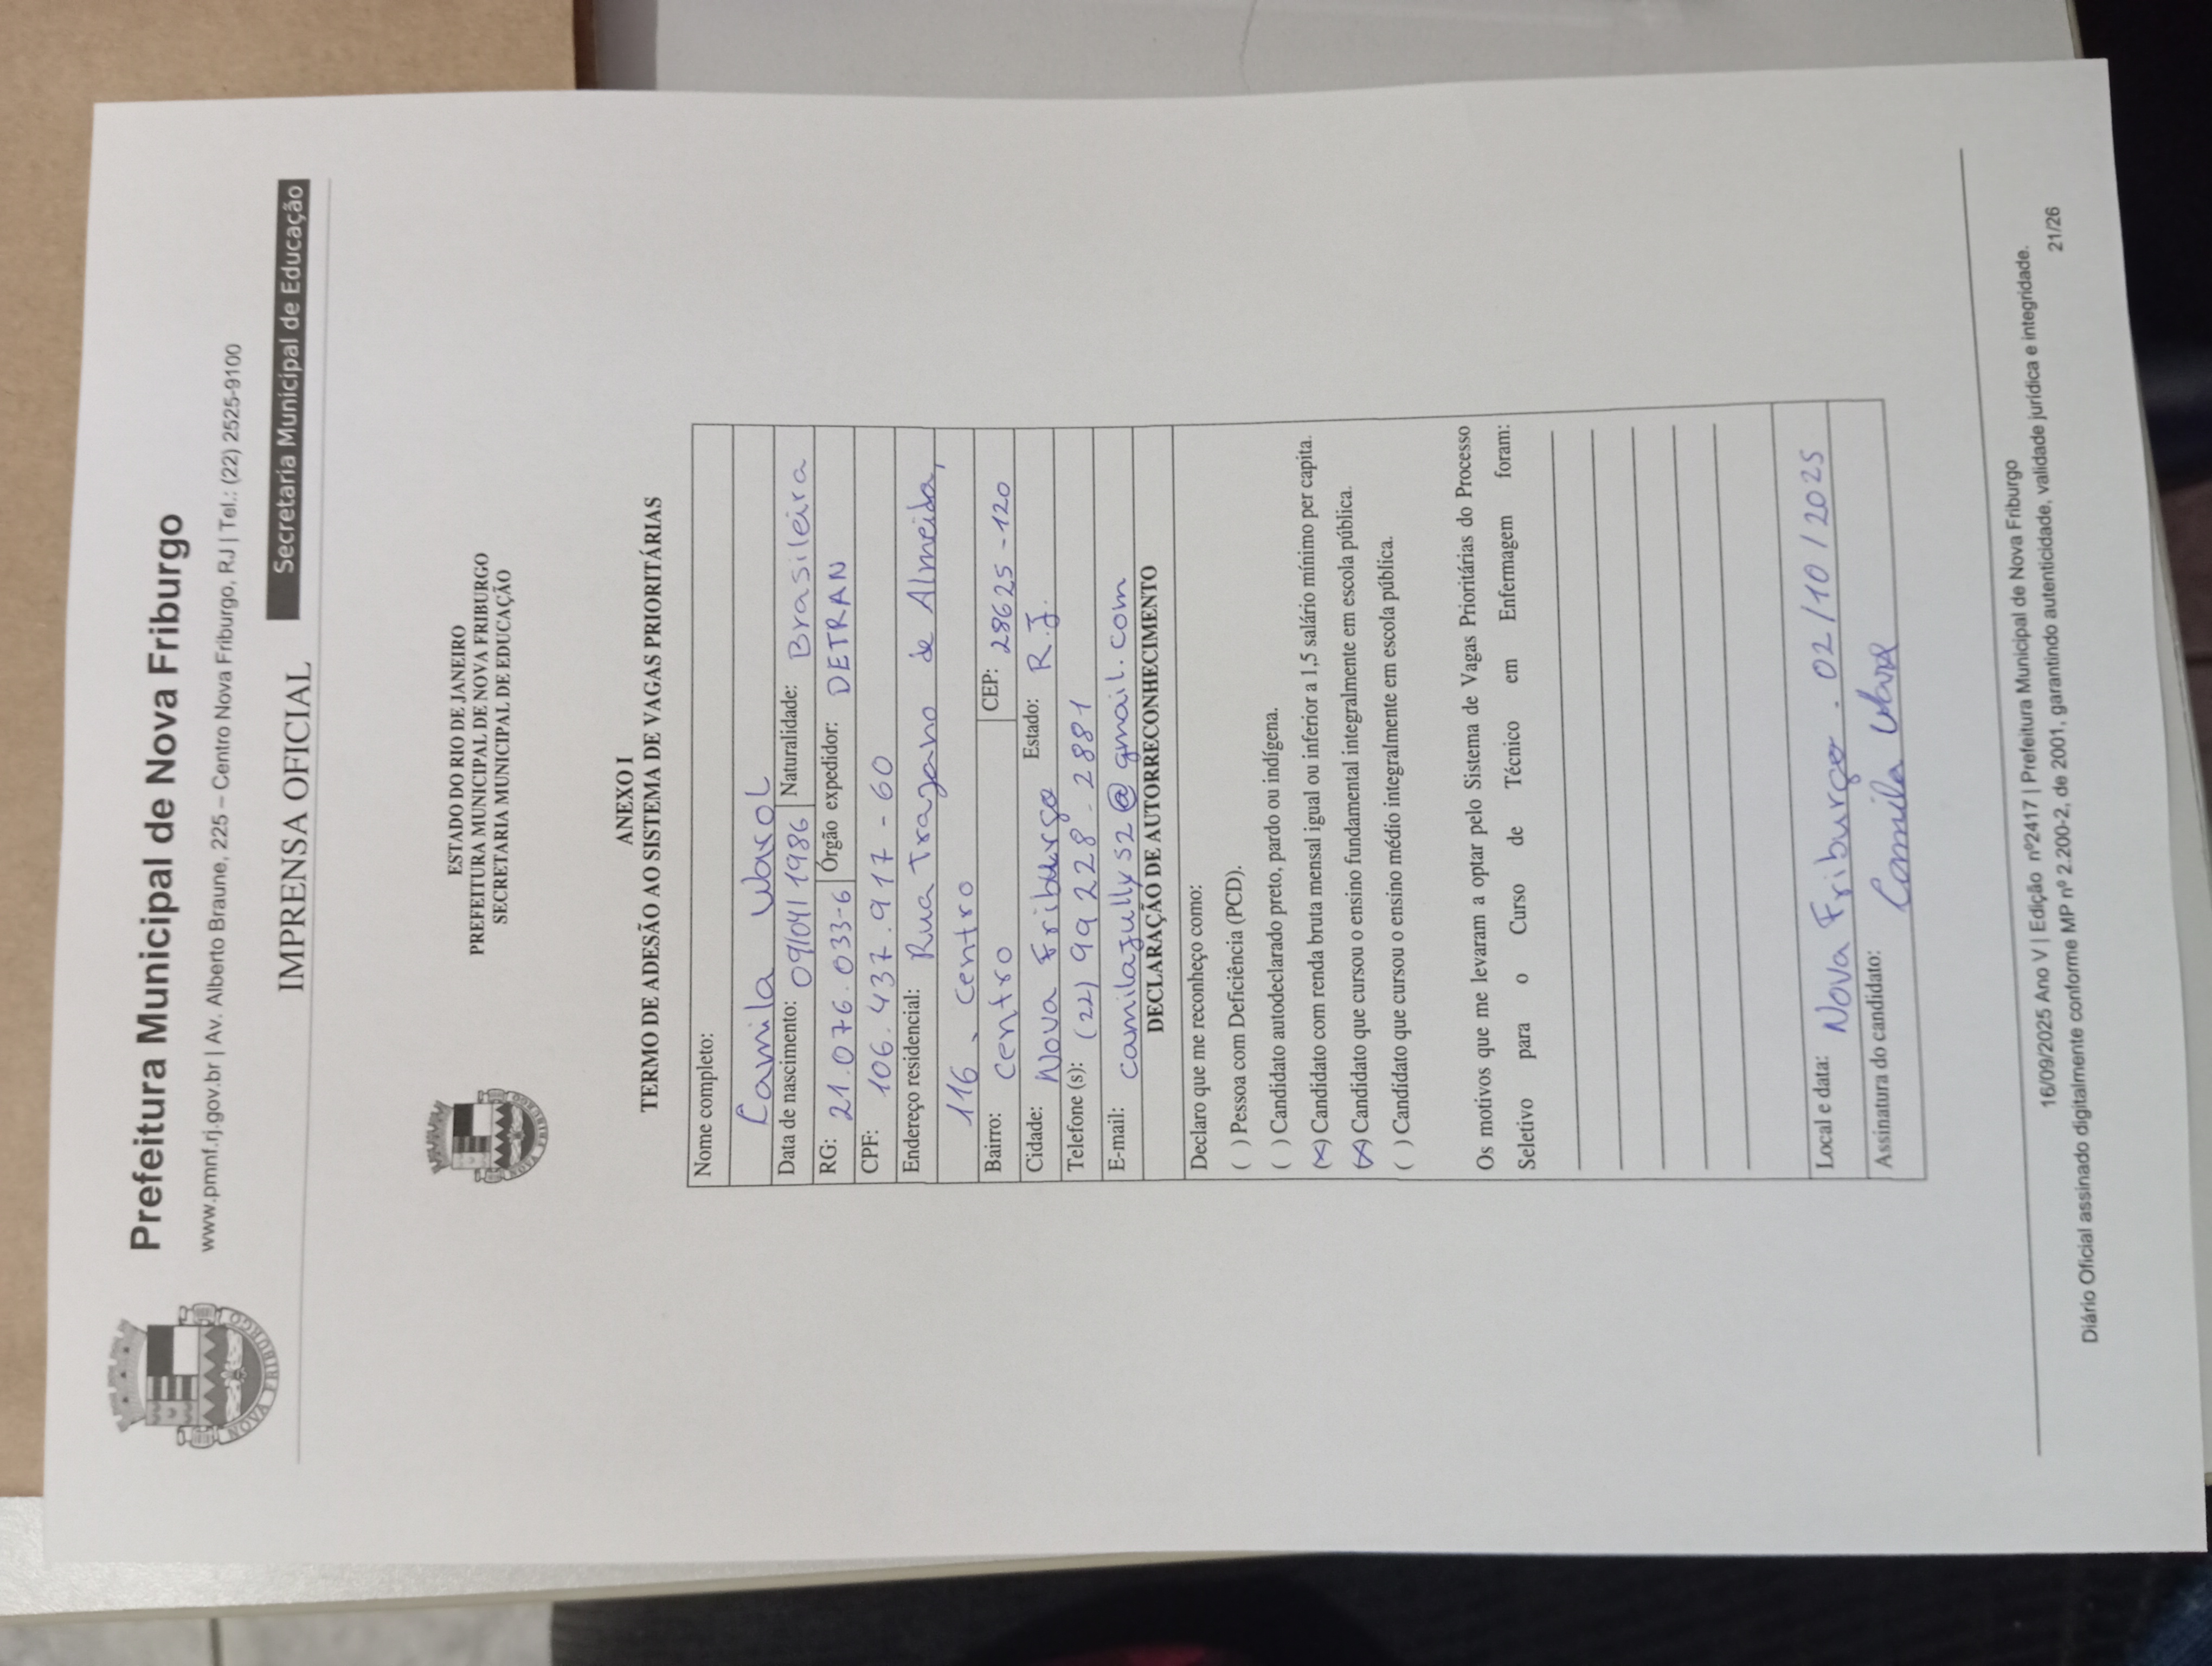 Prefeitura Municipal de Nova Friburgo
www.pmnf.rj.gov.br | Av. Alberto Braune, 225 – Centro Nova Friburgo, RJ | Tel.: (22) 2525-9100
IMPRENSA OFICIAL
Secretaria Municipal de Educação
NOVA FRIBURGO
ESTADO DO RIO DE JANEIRO
PREFEITURA MUNICIPAL DE NOVA FRIBURGO
SECRETARIA MUNICIPAL DE EDUCAÇÃO
NOVA FRIBURGO
ANEXO I
TERMO DE ADESÃO AO SISTEMA DE VAGAS PRIORITÁRIAS
Nome completo:
Camila Warol
Data de nascimento: 09/04/1986 Naturalidade: Brasileira
RG: 21.076.033-6 Órgão expedidor: DETRAN
CPF: 106.437.917-60
Endereço residencial: Rua Trajano de Almeida,
116. Centro
Bairro: Centro CEP: 28625-120
Cidade: Nova Friburgo Estado: R.J.
Telefone (s): (22) 99228-2881
E-mail: camilajullys2@gmail.com
DECLARAÇÃO DE AUTORRECONHECIMENTO
Declaro que me reconheço como:
( ) Pessoa com Deficiência (PCD).
( ) Candidato autodeclarado preto, pardo ou indígena.
(X) Candidato com renda bruta mensal igual ou inferior a 1,5 salário mínimo per capita.
(X) Candidato que cursou o ensino fundamental integralmente em escola pública.
( ) Candidato que cursou o ensino médio integralmente em escola pública.
Os motivos que me levaram a optar pelo Sistema de Vagas Prioritárias do Processo
Seletivo para o Curso de Técnico em Enfermagem foram:
Local e data: Nova Friburgo. 02/10/2025
Assinatura do candidato: Camila Warol
16/09/2025 Ano V | Edição nº2417 | Prefeitura Municipal de Nova Friburgo
Diário Oficial assinado digitalmente conforme MP nº 2.200-2, de 2001, garantindo autenticidade, validade jurídica e integridade.
21/26